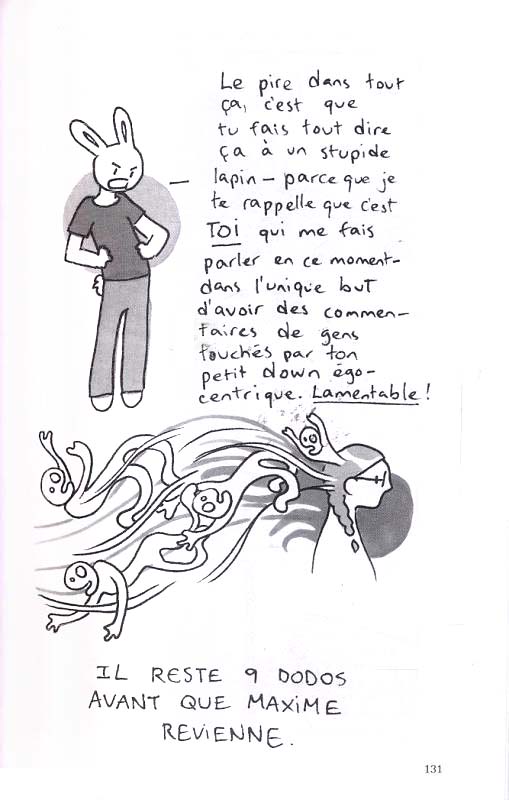 Le pire dans tout
ça, c'est que
tu fais tout dire
ça à un stupide
lapin – parce que je
te rappelle que c'est
TOI qui me fais
parler en ce moment–
dans l'unique but
d'avoir des commen–
taires de gens
touchés par ton
petit down égo–
centrique. Lamentable !
IL RESTE 9 DODOS
AVANT QUE MAXIME
REVIENNE.
131